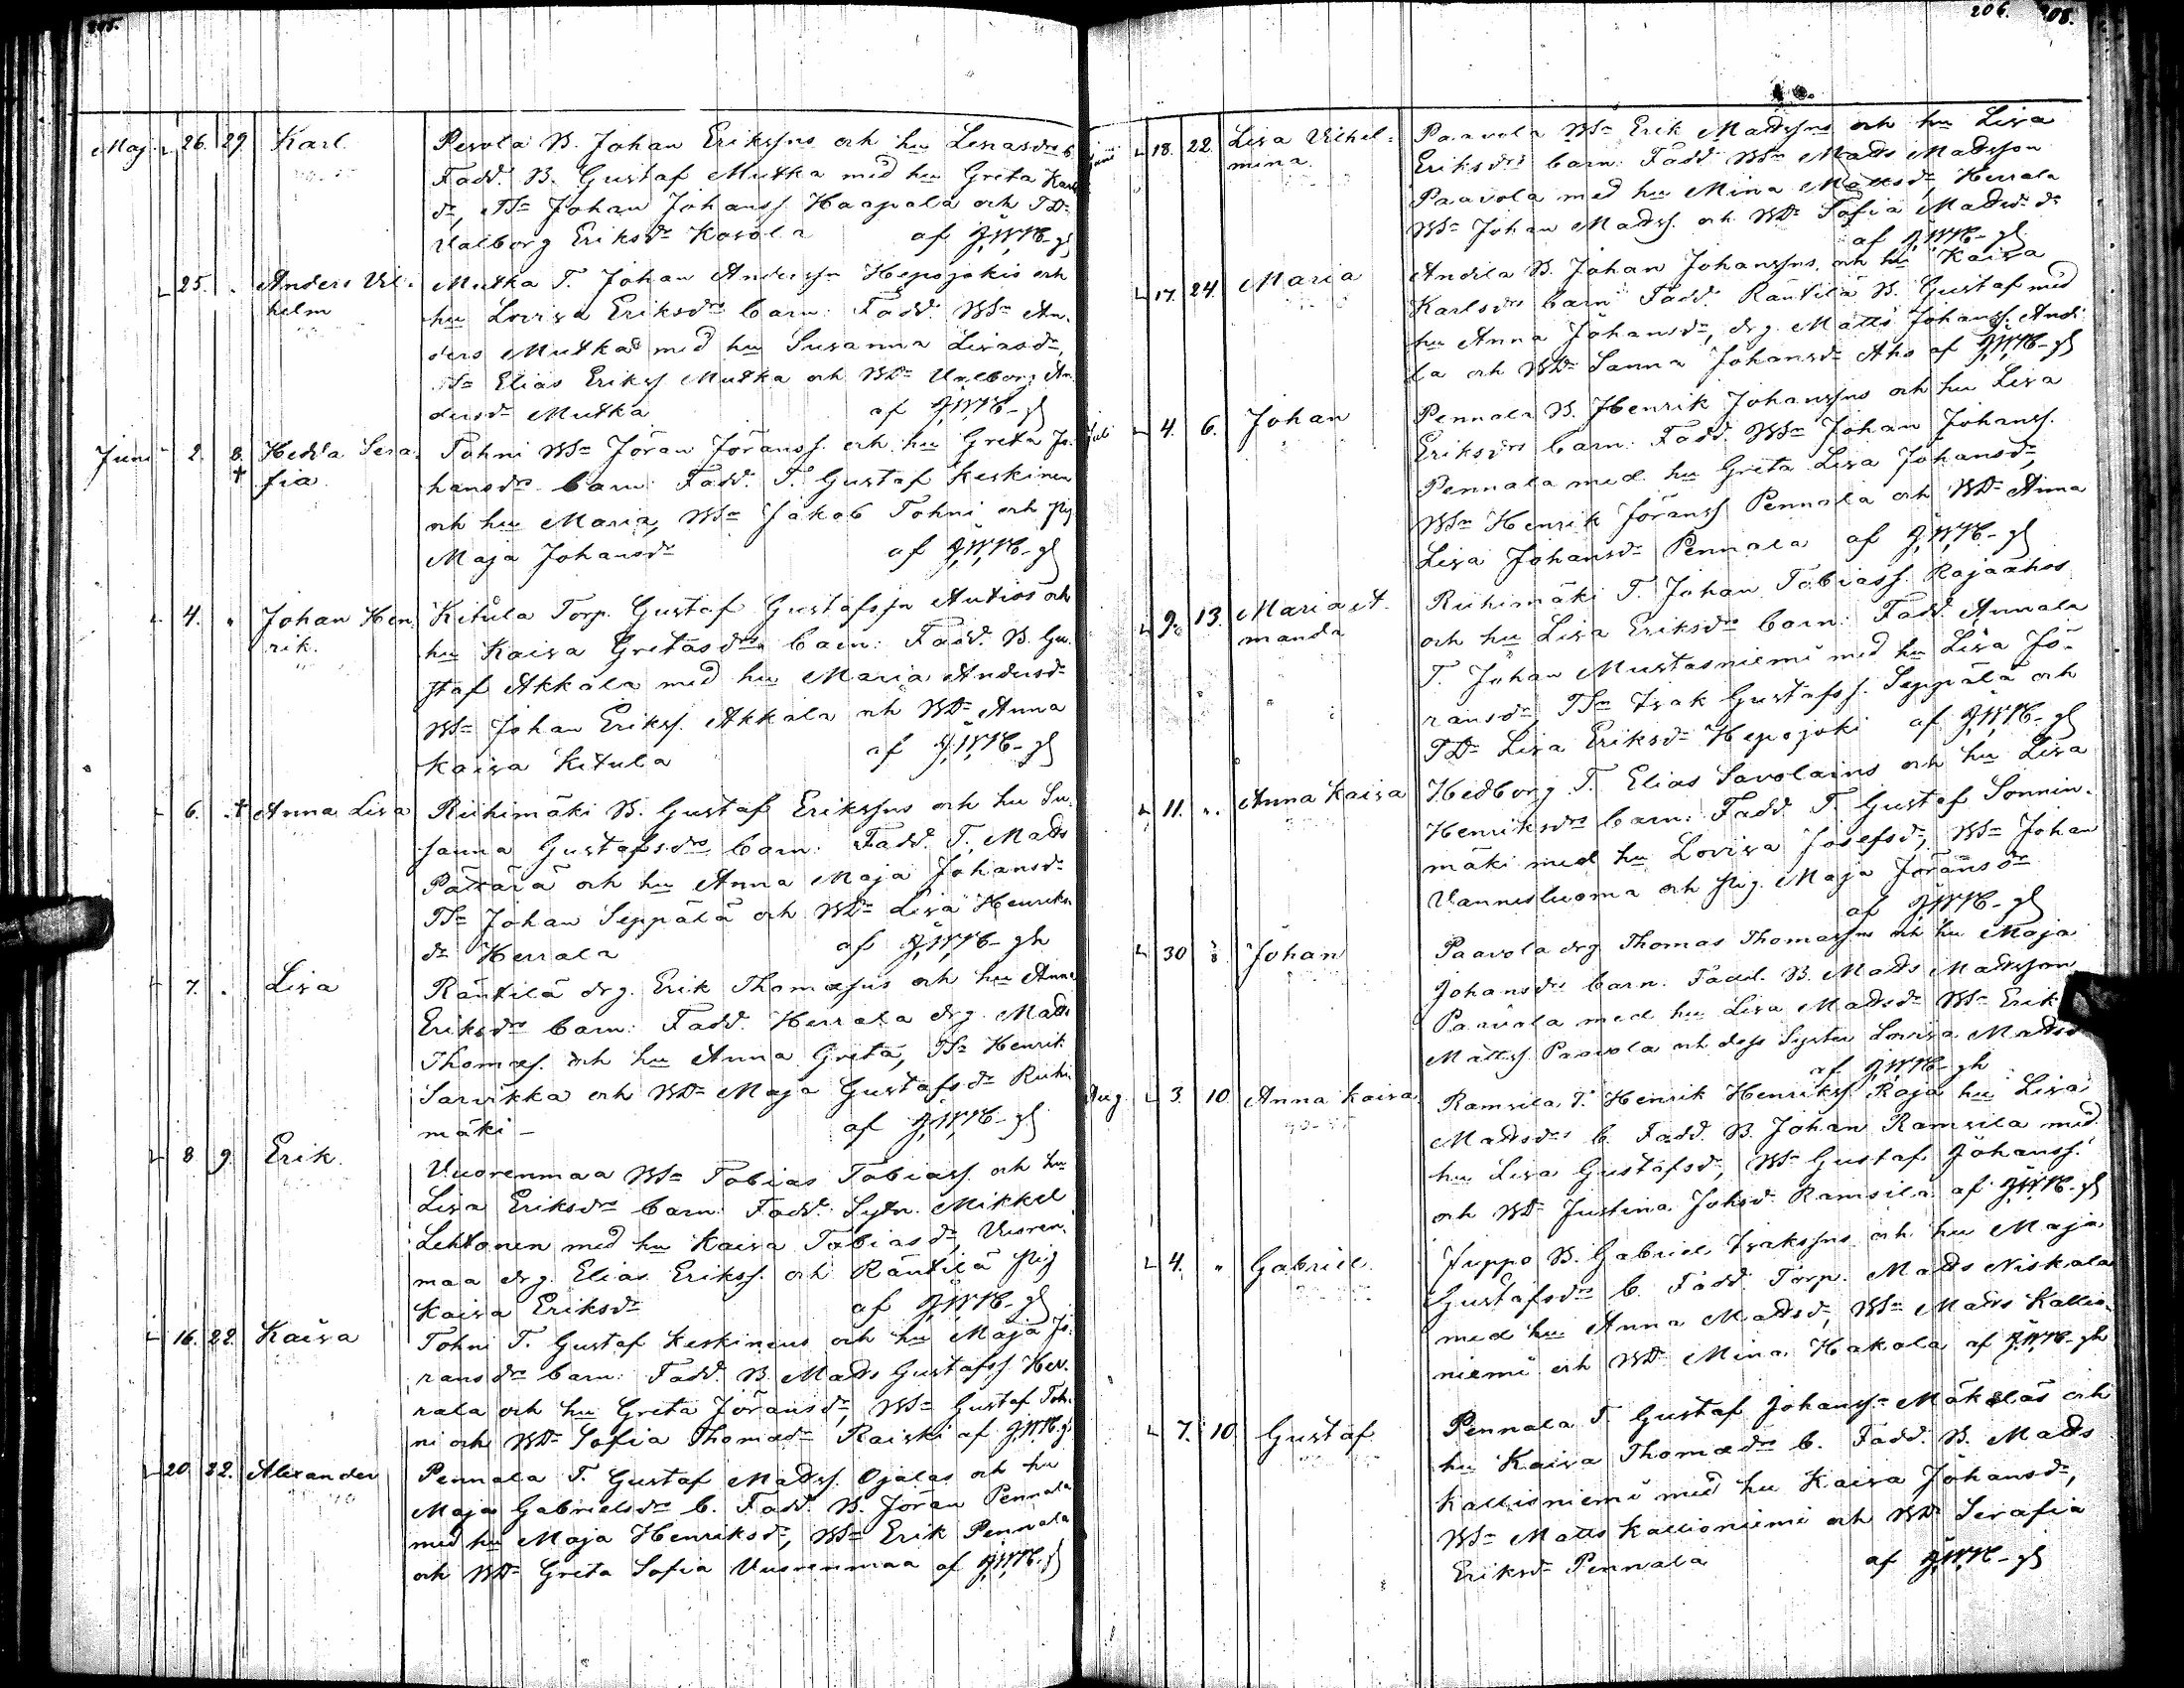 205.
Maj. 26. 29 Karl Pesola B. Johan Erikssns och hu Lisasdrs b.
Fadd. B. Gustaf Mutka med hu Greta Karls
dr, TSn Johan Johanss. Haapala och TDr
Valborg Eriksdr Kasola af J,W,H-gh
25. Anders Vil- Mutka T. Johan Anderssn Hepojokis och
helm hu Lovisa Eriksdrs barn: Fadd. BSn An-
ders Mutka med hu Susanna Lisasdr,
TSn Elias Erikss Mutka och BDr Valborg An-
dersdr Mutka af J,W,H-gh
Juni 2. 8. Hedda Sera- Tohni BSn Jöran Jöranss. och hu Greta Jo-
† fia hansdrs barn: Fadd. T. Gustaf Keskinen
och hu Maria, BSn Jakob Tohni och pig
Maja Johansdr af J,W,H-gh
4. " Johan Hen- Kitula Torp. Gustaf Gustafssn Autios och
rik. hu Kaisa Gretasdrs barn: Fadd. B. Gu-
staf Akkala med hu Maria Andersdr
BSn Johan Erikss. Akkala och BDr Anna
Kaisa Kitula af J,W,H-gh
6. † Anna Lisa Riihimäki B. Gustaf Erikssns och hu Su-
sanna Gustafsdrs barn: Fadd. T. Matts
Pättärä och hu Anna Maja Johansdr
TSn Johan Seppälä och BDr Lisa Henriks
dr Herrala af J,W,H-gh
7. Lisa Räntilä drg. Erik Thomassns och hu Anna
Eriksdrs barn: Fadd. Herrala drg. Matts
Thomass. och hu Anna Greta, TSn Henrik
Sarvikka och BDr Maja Gustafsdr Riihi-
mäki- af J,W,H-gh
8 9. Erik. Vuorenmaa BSn Tobias Tobiass. och hu
Lisa Eriksdrs barn: Fadd. Sytn. Mikkel
Lehtonen med hu Kaisa Tobiasdr, Vuoren-
maa drg. Elias Erikss. och Räntilä pig
Kaisa Eriksdr af J,W,H-gh
16. 22. Kaisa Tohni T. Gustaf Keskinens och hu Maja Jö-
ransdrs barn: Fadd. B. Matts Gustafss. Her-
rala och hu Greta Jöransdr, BSn Gustaf Toh-
ni och BDr Sofia Thomasdr Raiski af J,W,H-gh
20 22. Alexander Pennala T. Gustaf Matss. Ojalas och hu
Maja Gabrielsdrs b. Fadd. B. Jöran Pennala
med hu Maja Henriksdr, BSn Erik Pennala
och BDr Greta Sofia Vuorenmaa af J,W,H-gh
206. 208.
Juni 18. 22. Lisa Vilhel- Paavola BSn Erik Mattssns och hu Lisa
mina. Eriksdrs barn: Fadd. BSn Matts Mattsson
Paavola med hu Mina Mattsdr Herrala
BSn Johan Matss. och BDr Sofia Mattsdr dr
af J,W,H-gh
17. 24. Maria Andila B. Johan Johanssns och hu Kaisa
Karlsdrs barn: Fadd. Räntilä B. Gustaf med
hu Anna Johansdr, drg. Matts Johanss. Andi-
la och BDr Sanna Johansdr Aho af J,W,H-gh
Juli 4. 6. Johan Pennala B. Henrik Johanssns och hu Lisa
Eriksdrs barn: Fadd. BSn Johan Johanss.
Pennala med hu Greta Lisa Johansdr,
BSn Henrik Jöranss Pennala och BDr Anna
Lisa Johansdr Pennala af J,W,H-gh
9. 13. Maria A- Riihimäki T. Johan Tobiass. Rajaahos
manda och hu Lisa Eriksdrs barn: Fadd. Annala
T. Johan Mustasniemi med hu Lisa Jö-
ransdr, TSn Isak Gustafss. Seppälä och
TDr Lisa Eriksdr Hepojoki af J,W,H-gh
11. " Anna Kaisa Hedborg T. Elias Savolains och hu Lisa
Henriksdrs barn: Fadd. T. Gustaf Sonnin-
mäki med hu Lovisa Josefsdr, BSn Johan
Vannesluoma och pig. Maja Jöransdr
af J,W,H-gh
30 Johan Paavola drg Thomas Thomassns och hu Maja
Johansdrs barn. Fadd. B. Matts Mattsson
Paavola med hu Lisa Mattsdr BSn Erik
Mattss. Paavola och dess Syster Lovisa Mattsdr
af J,W,H-gh
Aug. 3. 10. Anna Kaisa Ramsila T. Henrik Henrikss. Raja hu Lisa
Mattsdrs b. Fadd. B. Johan Ramsila med
hu Lisa Gustafsdr, BSn Gustaf Johanss.
och BDr Justina Johsdr Ramsila af J,W,H-gh
4. " Gabriel Juppo B. Gabriel Isakssns och hu Maja
Gustafsdrs b. Fadd. Torp. Matts Niskala
med hu Anna Mattsdr, BSn Matts Kallio-
niemi och BDr Mina Hakala af J,W,H-gh
7. 10. Gustaf Pennala T. Gustaf Johanssn Mäkeläs och
hu Kaisa Thomasdrs b. Fadd. B. Matts
Kallioniemi med hu Kaisa Johansdr,
BSn Matts Kallioniemi och BDr Serafia
Eriksdr Pennala af J,W,H-gh